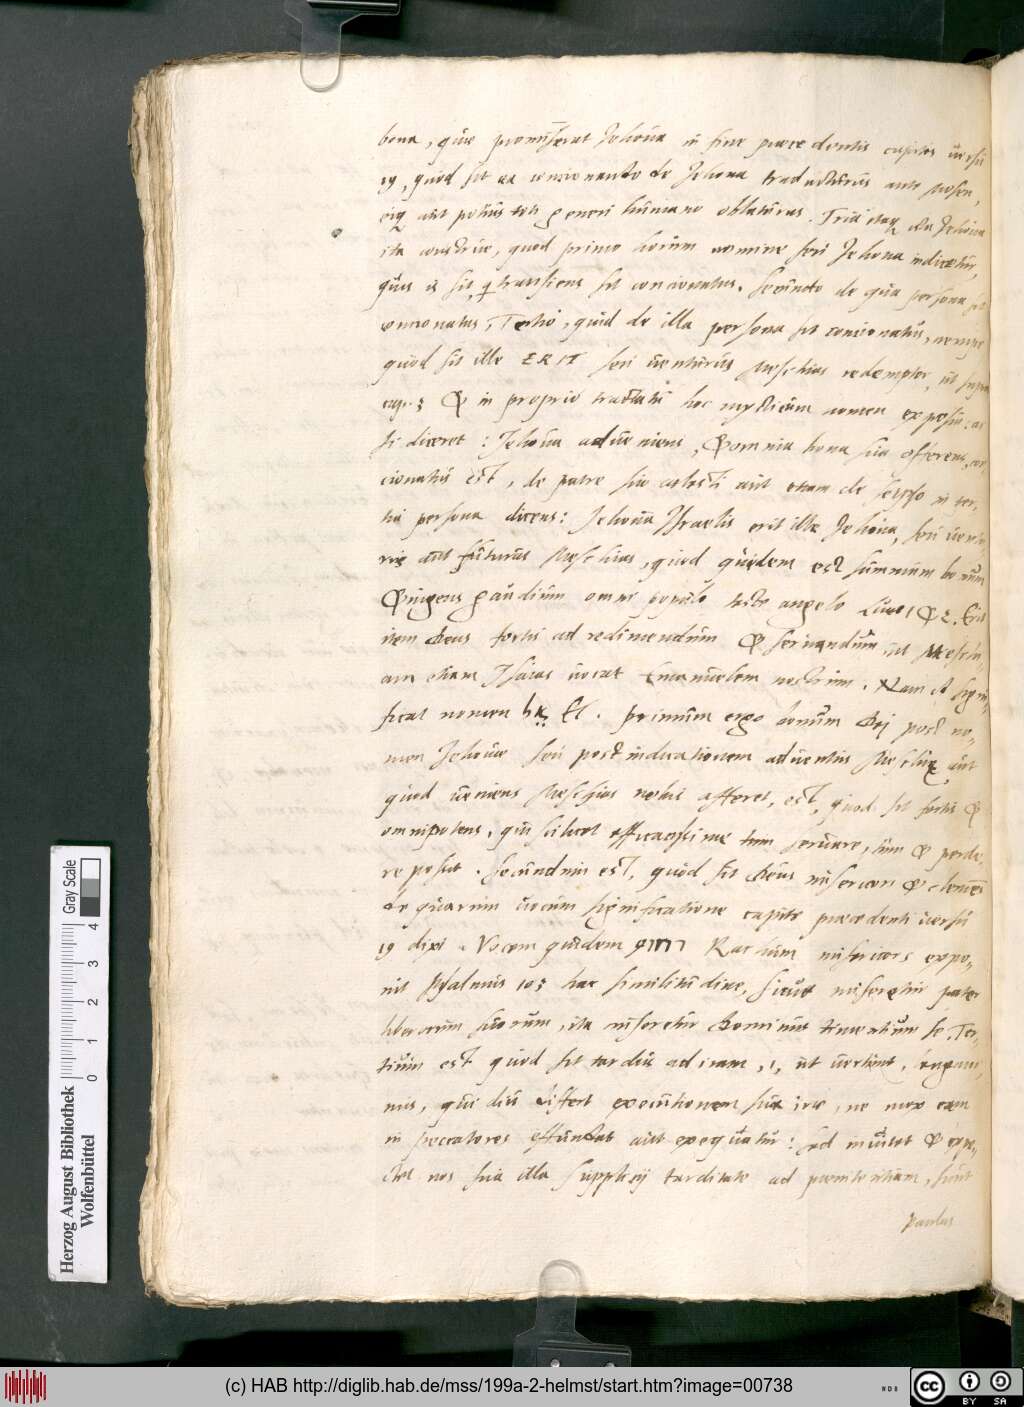 bona, quae promiserat Jehova in fine praecedentis capitis versu
19, quod sit ea concionando de Jehova traducturus ante Mosen,
eiq aut potius toti generi humano oblaturus. Tria itaq de Jehova
ita construe, quod primo horum nomine seu Jehova indicetur,
quis is sit, q transiens sit concionatus. Secundo de qua persona sit
concionatus, Tertio, quid de illa persona sit concionatus, nempe
quod sit ille ERIT seu venturus Meschias redemptor, ut supra
cap. 3 & in proprio tractatu hoc mysticum nomen exposui: ac
si diceret: Jehova adveniens, & omnia bona sua offerens, con
cionatus est, de patre suo coelesti aut etiam de seipso in ter-
tia persona dicens: Jehova Israelis erit ille Jehova, seu ventu
rus aut futurus Meschias, quod quidem est summum bonum
& ingens gaudium omni populo teste angelo Luce 1 & 2. Erit
item Deus fortis ad redimendum & servandum, ut Meschi-
am etiam Isaias vocat Emanuelem nostrum. Nam id signi-
ficat nomen אל El. primum ergo bonum Dei post no-
men Jehovae seu post indicationem adventus Meschiae aut
quod veniens Meschias nobis afferet, est, quod sit fortis &
omnipotens, qui scilicet efficacissime tum servare, tum & perde-
re possit. Secundum est, quod sit Deus misericors & clemens
de quarum vocum significatione capite praecedenti versu
19 dixi. Vocem quidem רחום Rachum misericors expo-
nit Psalmus 103 hac similitudine, sicut miseretur pater
liberorum suorum, ita miseretur Dominus timentium se. Ter-
tium est quod sit tardus ad iram, .i. ut vertunt, longani-
mis, qui diu differt executionem suae irae, ne mox eam
in peccatores effundat aut exequatur: sed invitet & expe-
ctet nos sua illa supplicij tarditate ad poenitentiam, sicut
Paulus
Herzog August Bibliothek
Wolfenbüttel
0 1 2 3 4
Gray Scale
(c) HAB http://diglib.hab.de/mss/199a-2-helmst/start.htm?image=00738
cc BY SA